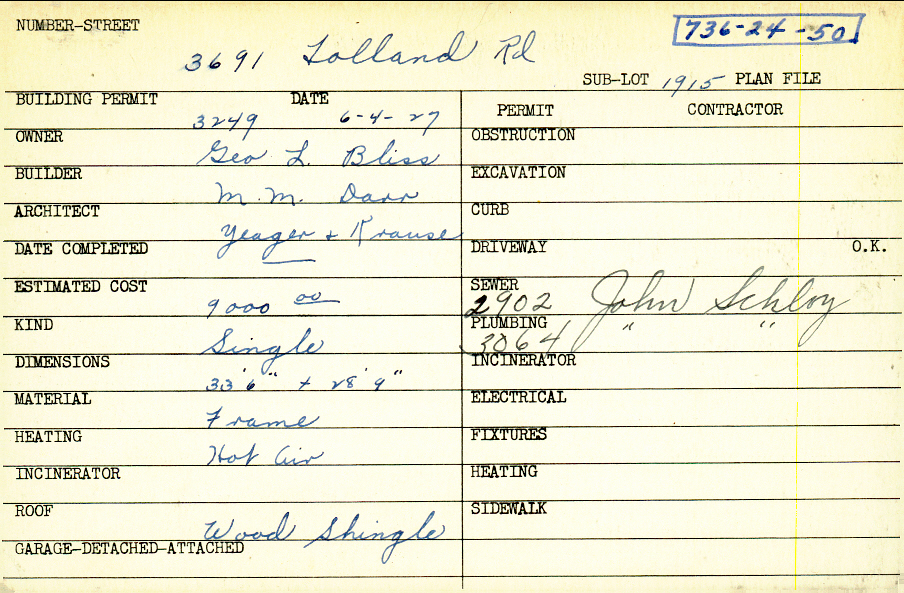 NUMBER-STREET
736-24-50
3691 Tolland Rd
SUB-LOT 1915 PLAN FILE
BUILDING PERMIT DATE
3249 6-4-27
OWNER
Geo L. Bliss
BUILDER
M. M. Darr
ARCHITECT
Yeager + Krause
DATE COMPLETED
ESTIMATED COST
9000 00
KIND
Single
DIMENSIONS
33'6" + 28'9"
MATERIAL
Frame
HEATING
Hot Air
INCINERATOR
ROOF
Wood Shingle
GARAGE-DETACHED-ATTACHED
PERMIT CONTRACTOR
OBSTRUCTION
EXCAVATION
CURB
DRIVEWAY O.K.
SEWER
2902 John Schloy
PLUMBING
3064 " "
INCINERATOR
ELECTRICAL
FIXTURES
HEATING
SIDEWALK